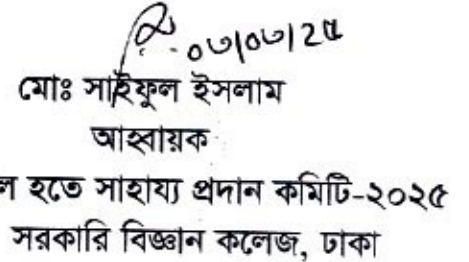 ০৩/০৩/২৫
মোঃ সাইফুল ইসলাম
আহ্বায়ক
হতে সাহায্য প্রদান কমিটি-২০২৫
সরকারি বিজ্ঞান কলেজ, ঢাকা